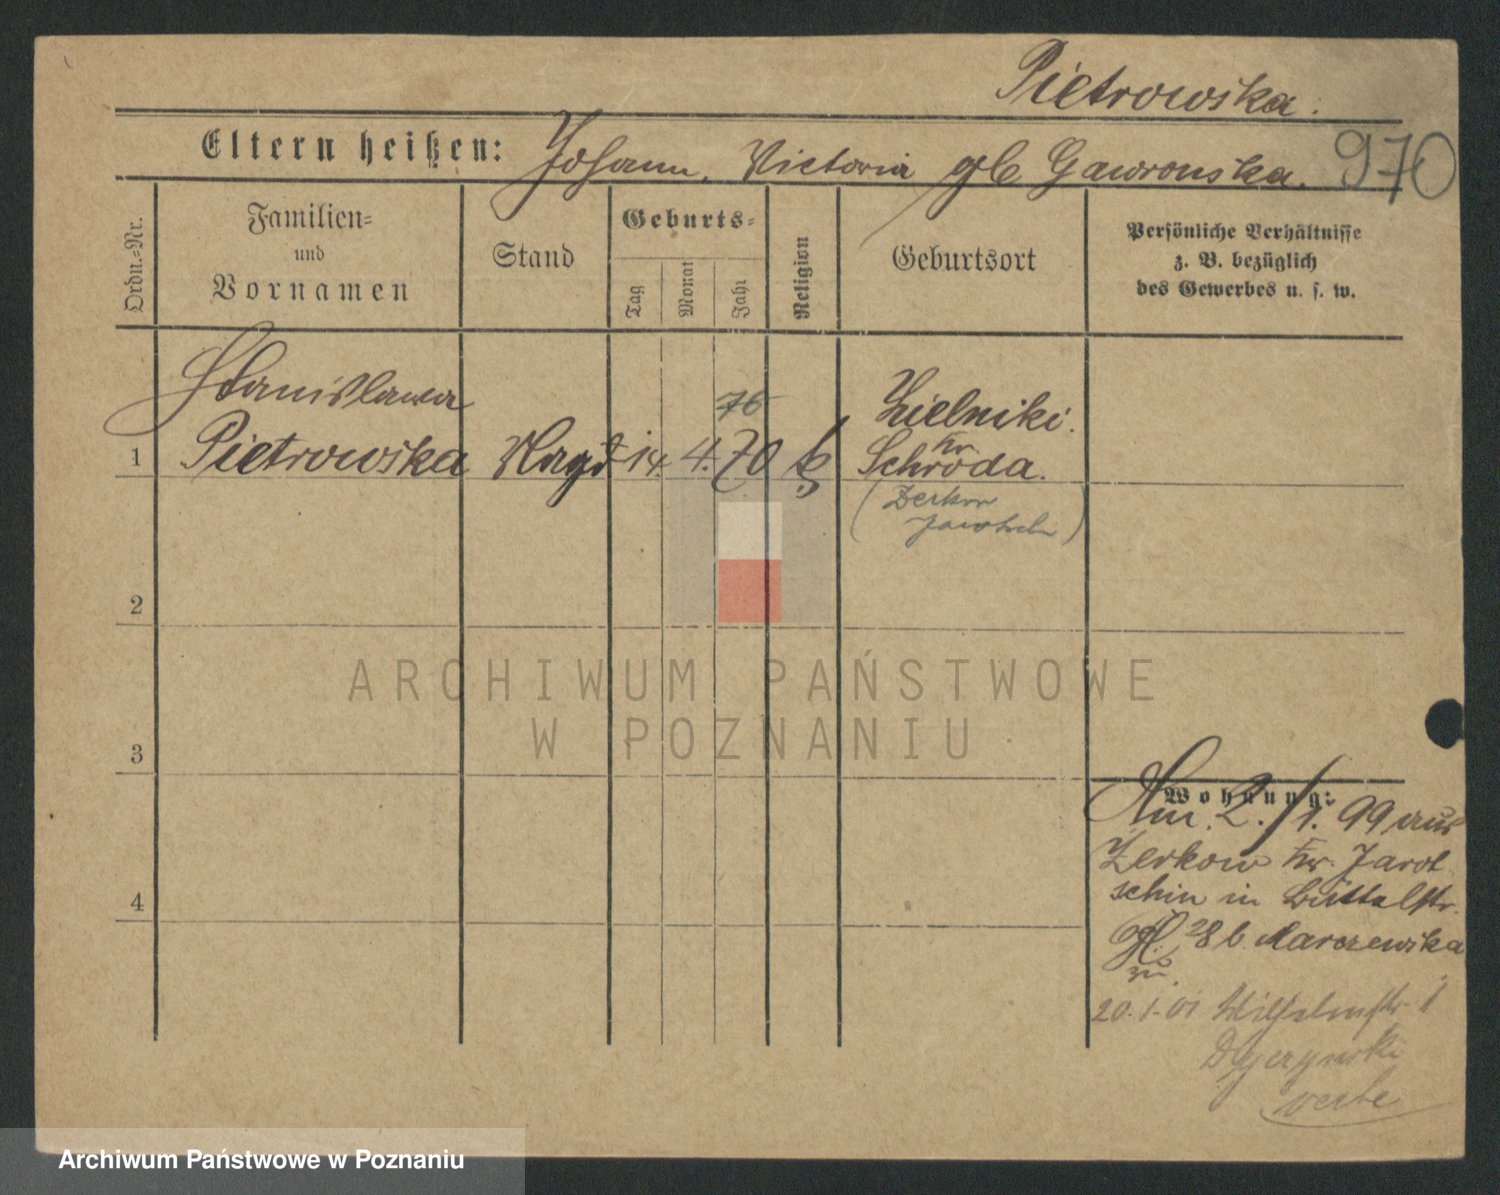 Pietrowska.
Eltern heißen: Johann, Victoria gb Gawronska.
970
Ordn.-Nr.
Familien-
und
Vornamen
Stand
Geburts-
Tag
Monat
Jahr
Religion
Geburtsort
Persönliche Verhältnisse
z. B. bezüglich
des Gewerbes u. s. w.
Stanislawa
76
Zielniki.
1 Pietrowska Magd 14. 4. 70 k
Kr
Schroda.
(Zerkow
)
2
ARCHIWUM PAŃSTWOWE
W POZNANIU
3
Wohnung:
Am 2./1. 99 aus
Zerkow Kr. Jarot
schin in Büttelstr.
4
28 b. Marczewska
zu.
20.1.01 Wilhelmstr 1
Archiwum Państwowe w Poznaniu